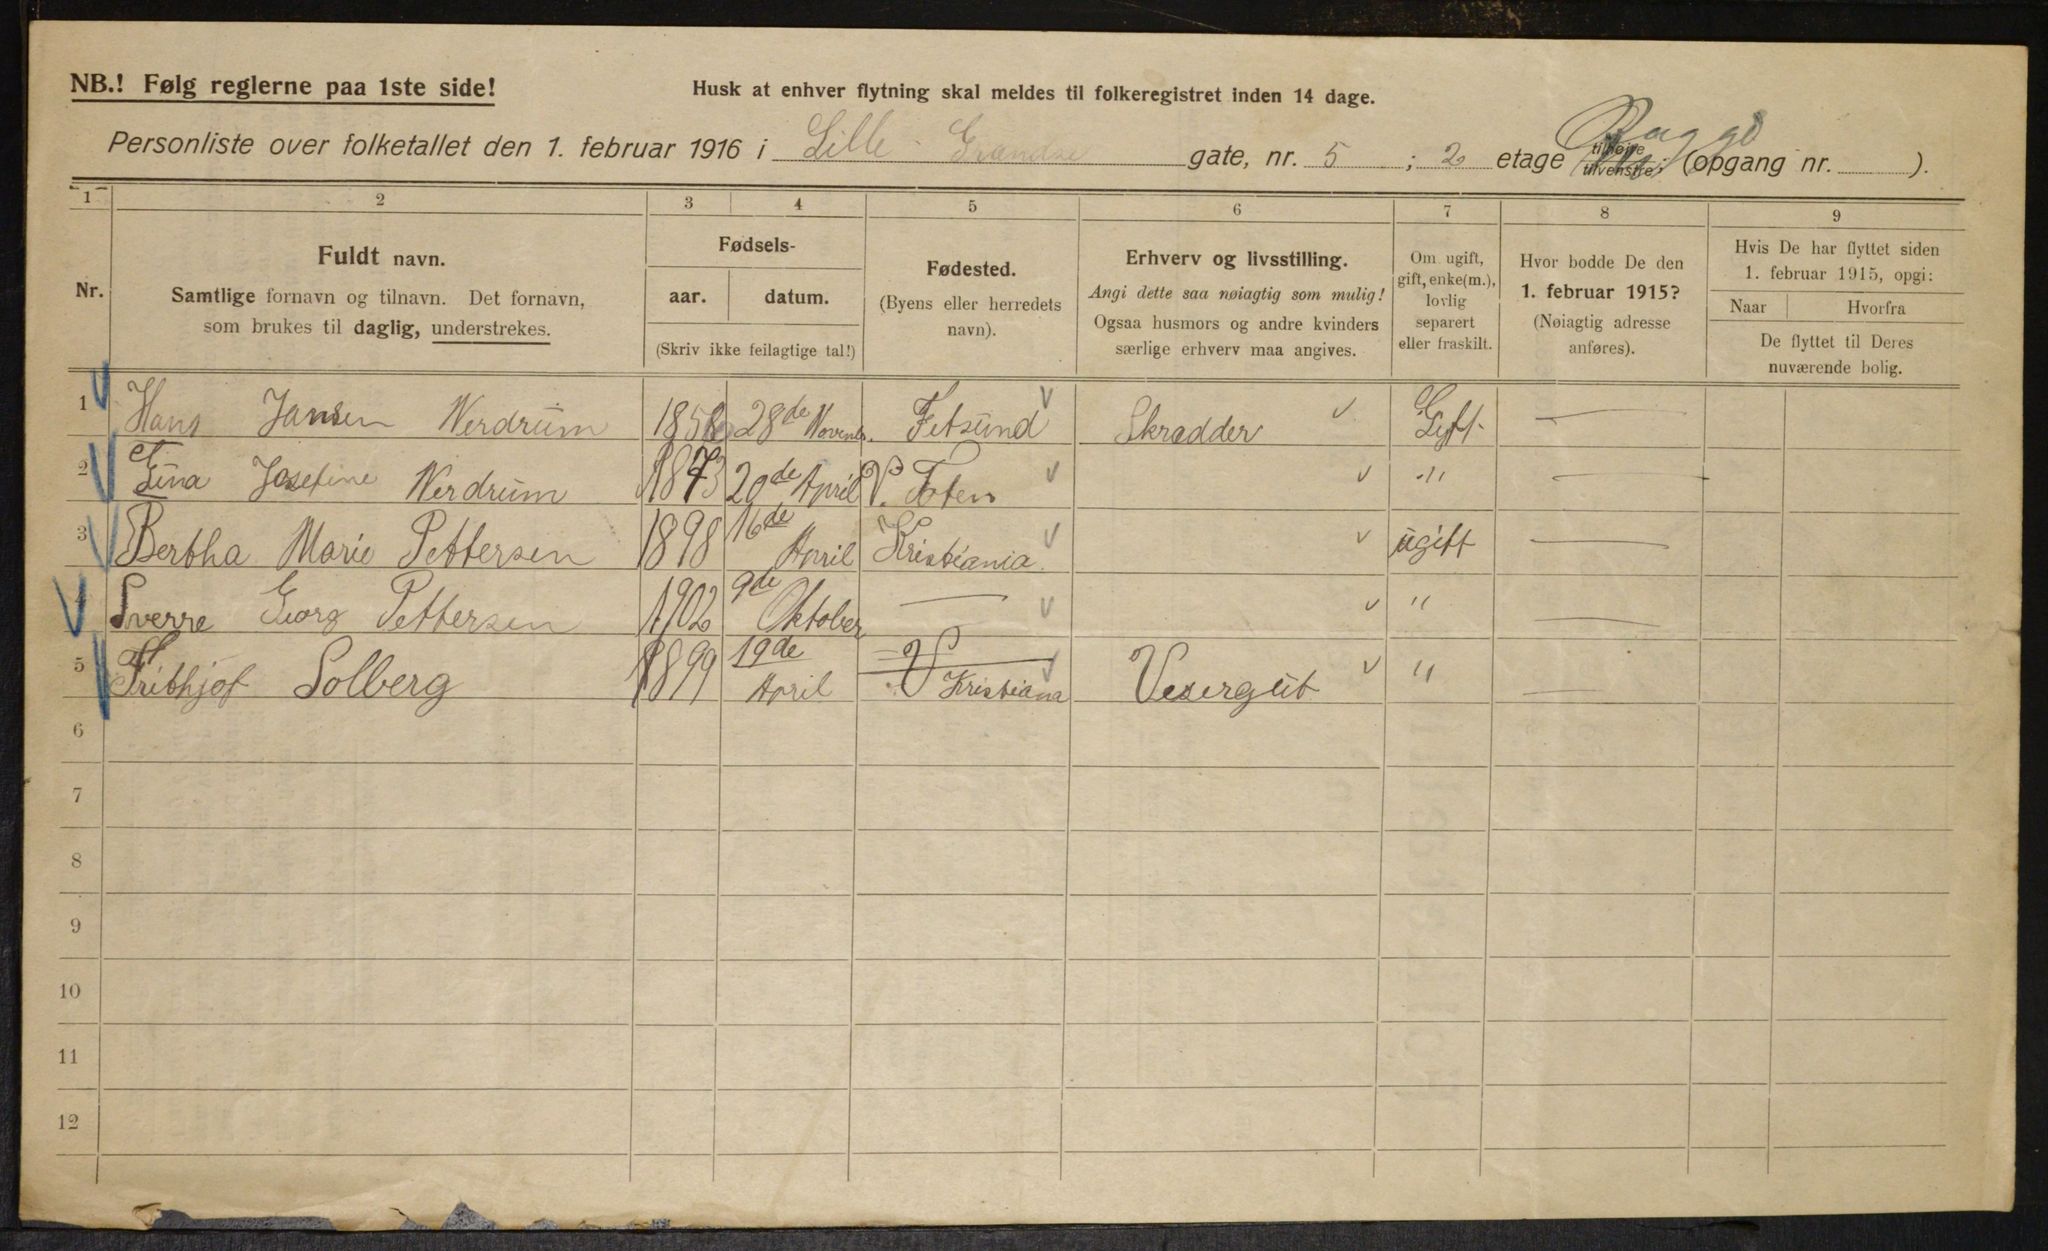 NB.! Følg reglerne paa 1ste side!
Husk at enhver flytning skal meldes til folkeregistret inden 14 dage.
Personliste over folketallet den 1. februar 1916 i Lille Grændse gate, nr. 5 ; 2 etage tilhøire tilvenstre; (opgang nr. ).
1 2 3 4 5 6 7 8 9
Nr.
Fuldt navn.
Samtlige fornavn og tilnavn. Det fornavn,
som brukes til daglig, understrekes.
Fødsels-
aar. datum.
(Skriv ikke feilagtige tal!)
Fødested.
(Byens eller herredets
navn).
Erhverv og livsstilling.
Angi dette saa nøiagtig som mulig!
Ogsaa husmors og andre kvinders
særlige erhverv maa angives.
Om ugift,
gift, enke(m.),
lovlig
separert
eller fraskilt.
Hvor bodde De den
1. februar 1915?
(Nøiagtig adresse
anføres).
Hvis De har flyttet siden
1. februar 1915, opgi:
Naar Hvorfra
De flyttet til Deres
nuværende bolig.
1 Hans Jansen Werdrum 28de Novemb. Fetsund Skrædder Gift —
2 Josefine Werdrum 1873 20de April V. Toten " —
3 Bertha Marie Pettersen 1898 16de April Kristiania. ugift —
4 Sverre Georg Pettersen 1902 9de Oktober — " —
5 Frithjof Solberg 1899 19de April Kristiana Visergut " —
6
7
8
9
10
11
12